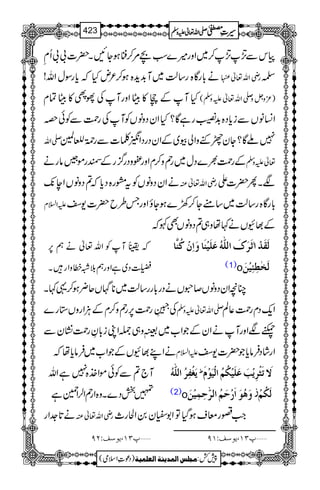 سیرتِ مصطفیٰ صلی اللہ تعالیٰ علیہ وسلم 423
پیاس سے تڑپ تڑپ کر میں اور میرے سب بچے مر کر فنا ہو جائیں۔ حضرت بی بی اُم
سلمہ رضی اللہ تعالیٰ عنہا نے بارگاہ رسالت میں آبدیدہ ہو کر عرض کیا کہ یارسول اللہ!
(عزوجل وصلی اللہ تعالیٰ علیہ وسلم) کیا آپ کے چچا کا بیٹا اور آپ کی پھوپھی کا بیٹا تمام
انسانوں سے زیادہ بدنصیب رہے گا؟ کیا ان دونوں کو آپ کی رحمت سے کوئی حصہ
نہیں ملے گا؟ جان چھڑکنے والی بیوی کے ان درد انگیز کلمات سے رحمۃ للعٰلمین صلی اللہ
تعالیٰ علیہ وسلم کے رحمت بھرے دل میں رحم و کرم اور عفو و درگزر کے سمندر موجیں مارنے
لگے۔ پھر حضرت علی رضی اللہ تعالیٰ عنہ نے ان دونوں کو یہ مشورہ دیا کہ تم دونوں اچانک
بارگاہ رسالت میں سامنے جا کر کھڑے ہو جاؤ اور جس طرح حضرت یوسف علیہ السلام
کے بھائیوں نے کہا تھا وہی تم دونوں بھی کہو کہ
لَقَدْ اٰثَرَكَ اللّٰهُ عَلَيْنَا وَاِنْ كُنَّا کہ یقیناً آپ کو اللہ تعالیٰ نے ہم پر
لَخٰطِئِيْنَ ۝ (1) فضیلت دی ہے اور ہم بلاشبہ خطاوار ہیں۔
چنانچہ ان دونوں صاحبوں نے دربار رسالت میں ناگہاں حاضر ہو کر یہی کہا۔
ایک دم رحمت عالم صلی اللہ تعالیٰ علیہ وسلم کی جبینِ رحمت پر رحم و کرم کے ہزاروں ستارے
چمکنے لگے اور آپ نے ان کے جواب میں بعینہٖ وہی جملہ اپنی زبانِ رحمت نشان سے
ارشاد فرمایا جو حضرت یوسف علیہ السلام نے اپنے بھائیوں کے جواب میں فرمایا تھا کہ
لَا تَثْرِيْبَ عَلَيْكُمُ الْيَوْمَ ؕ يَغْفِرُ اللّٰهُ آج تم سے کوئی مواخذہ نہیں ہے اللہ
لَكُمْ ؗ وَهُوَ اَرْحَمُ الرّٰحِمِيْنَ ۝ (2) تمہیں بخش دے۔ وہ ارحم الراحمین ہے۔
جب قصور معاف ہو گیا تو ابوسفیان بن الحارث رضی اللہ تعالیٰ عنہ نے تاجدار
1……پ۱۳، یوسف:۹۱ 2……پ۱۳، یوسف:۹۲
پیش کش: مجلس المدينة العلمية (دعوتِ اسلامی)